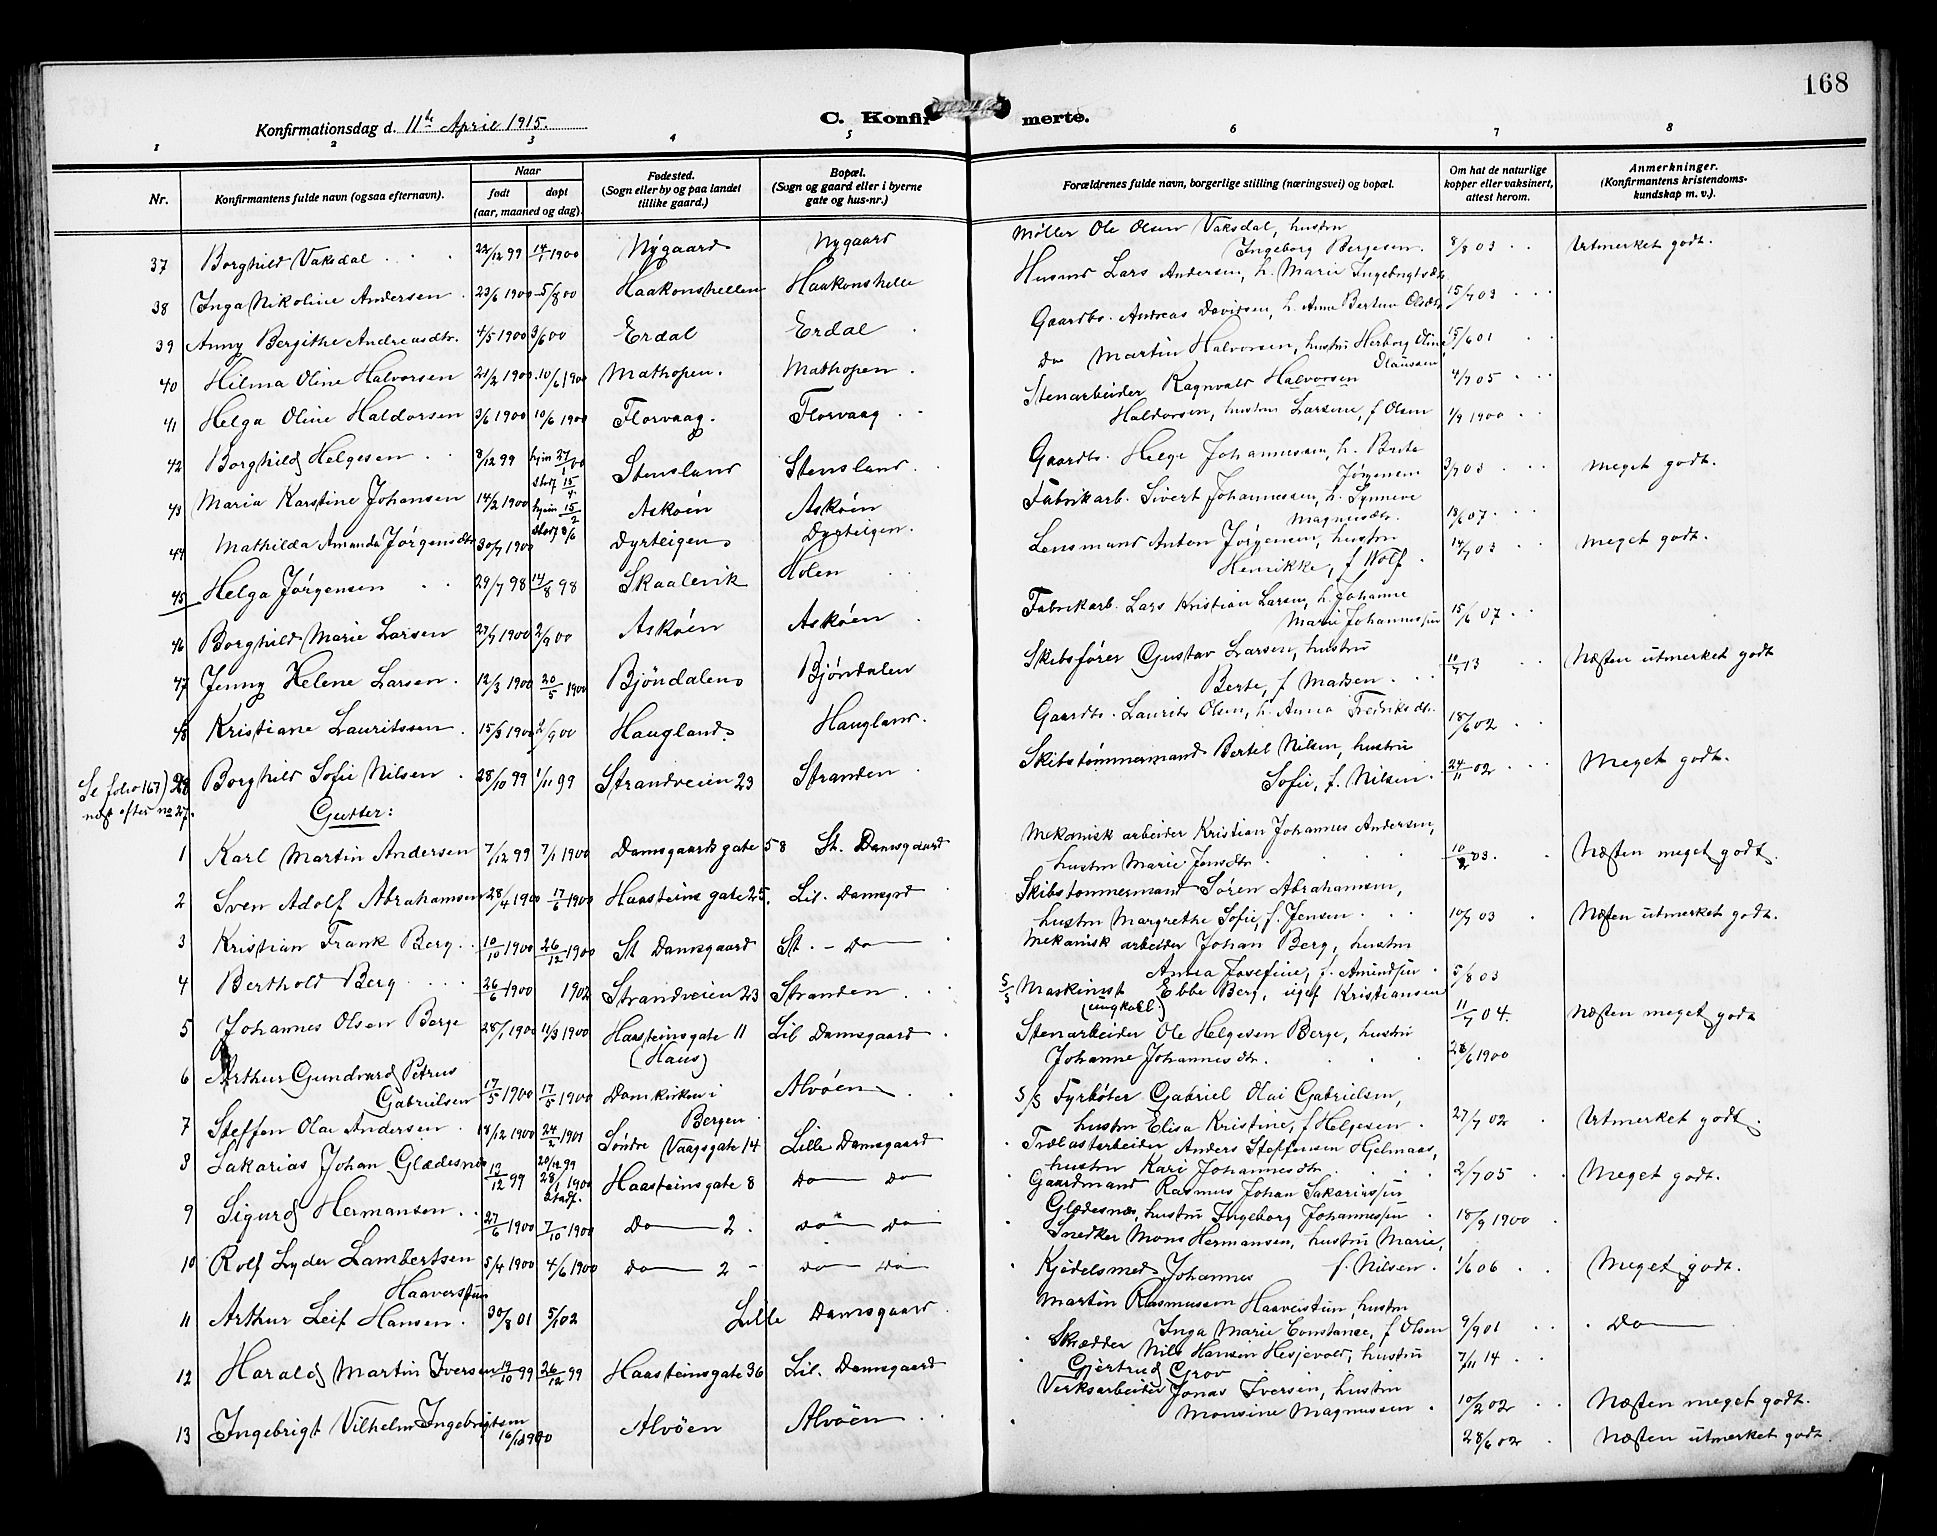 168
Konfirmationsdag d. 11te April 1915.
C. Konfirmerte.
1 2 3 4 5 6 7 8
Nr. Konfirmantens fulde navn (ogsaa efternavn). Naar født døpt (aar, maaned og dag). Fødested. (Sogn eller by og paa landet tillike gaard.) Bopæl. (Sogn og gaard eller i byerne gate og hus-nr.) Forældrenes fulde navn, borgerlige stilling (næringsvei) og bopæl. Om hat de naturlige kopper eller vaksinert, attest herom. Anmerkninger. (Konfirmantens kristendoms-kundskap m. v.).
37 Borghild Vaksdal 22/12 99 14/1 1900 Nygaard Nygaard Møller Ole Olsen Vaksdal, hustru Ingeborg Bergesen. 8/8 03 Utmerket godt.
38 Inga Nikoline Andersen 23/6 1900 5/8 00 Haakonshellen Haakonshelle Husmd Lars Andersen, h. Marie Ingebrigtsdtr. 15/7 03
39 Anny Bergithe Andreasdtr. 4/5 1900 3/6 00 Erdal Erdal Gaardbr. Andreas Davidsen, h. Anna Bertine Olsdtr. 15/6 01
40 Hilma Oline Halvorsen 21/2 1900 10/6 1900 Mathopen. Mathopen. Do Martin Halvorsen, hustru Herborg Oline Olaussen 4/7 05
41 Helga Oline Haldorsen 3/6 1900 10/6 1900 Florvaag. Florvaag Stenarbeider Ragnvald Halvorsen Haldorsen, hustru Larsine, f Olsen 1/9 1900
42 Borghild Helgesen 8/12 99 hjem 27/1 00 stadf 15/4 Stensland Stensland Gaardbr. Helge Johannessen, h. Brite Jørgensen 3/7 03 Meget godt.
43 Maria Karstine Johansen 14/2 1900 hjem 15/2 stadf 8/6 Askøen Askøen Fabrikarb. Sivert Johannessen, h. Synneve Magnusdtr. 18/6 07
44 Mathilda Amanda Jørgensdtr 30/7 1900 Dyrteigen Dyrteigen. Lensmand Anton Jørgensen, hustru Henrikke, f Wolf. 14/7 03 Meget godt.
45 Helga Jørgensen 29/7 98 14/8 98 Skaalevik Holen
46 Borghild Marie Larsen 27/7 1900 2/9 00 Askøen Askøen Fabrikarb. Lars Kristian Larsen, h. Johanne Marie Johannessen 15/6 07
47 Jenny Helene Larsen. 12/3 1900 20/5 1900 Bjöndalen Bjöndalen Skibsfører Gustav Larsen, hustru Berte, f Madsen 10/7 13 Næsten utmerket godt
48 Kristiane Lauritssen 15/5 1900 2/9 00 Haugland Haugland. Gaardbr. Laurits Olsen, h. Anna Fredriksdtr. 18/6 02
Se folio 167) 28 Borghild Sofie Nilsen 28/10 99 1/11 99 Strandveien 23 Stranden Skibstømmermand Bertel Nilsen, hustru Sofie, f. Nilsen 24/11 02 Meget godt.
næst efter no 27.
Gutter:
1 Karl Martin Andersen 7/12 99 7/1 1900 Damsgaards gate 58 St. Damsgaard Mekanisk arbeider Kristian Johannes Andersen, hustru Marie Jensdtr. 10/2 03. Næsten meget godt.
2 Sven Adolf Abrahamsen 28/4 1900 17/6 1900 Haasteins gate 25. Lil. Damsgrd Skibstømmermand Sören Abrahamsen, hustru Margrethe Sofie, f. Jensen 10/7 03 Næsten utmerket godt.
3 Kristian Frank Berg 10/10 1900 26/12 1900 St Damsgaard St. - Do Mekanisk arbeider Johan Berg, hustru Anna Josefine, f. Amundsen 5/8 03
4 Berthold Berg 26/6 1900 1902 Strandveien 23 Stranden S/S Maskinist Ebbe Berg, ugift Kristiansen (ungkarl) 11/7 04. Næsten meget godt
5 Johannes Olsen Berge 28/1 1900 11/3 1900 Haasteinsgate 11 (Haus) Lil Damsgaard Stenarbeider Ole Helgesen Berge, hustru Johanne Johannesdtr. 28/6 1900
6 Arthur Gundvard Petrus Gabrielsen 17/5 1900 17/5 1900 Domkirken i Bergen Alvöen S/S Fyrbøter Gabriel Olai Gabrielsen, hustru Elisa Kristine, f Helgesen 27/7 02 Utmerket godt.
7 Steffen Olai Andersen 18/12 1900 24/2 1901 Søndre Vaagsgate 14 Lille Damsgaard Trælastarbeider Anders Steffensen Hjelmaas, hustru Kari Johannesdtr. 2/7 05 Meget godt.
8 Sakarias Johan Glædesnes 12/12 99 20/12 99 28/1 1900 Stadf. Haasteinsgate 8 Do Do Gaardmand Rasmus Johan Sakariassen Glædesnes, hustru Ingeborg Johannessen 18/9 1900
9 Sigurd Hermansen 27/6 1900 7/10 1900 Do 2. Do Do Snedker Mons Hermansen, hustru Marie, f. Nilsen 1/6 06 Meget godt.
10 Rolf Lyder Lambertsen Haaverstun 5/4 1900 4/6 1900 Do 2 Do Do Kjedelsmed Johannes Martin Rasmussen Haaverstun, hustru Inga Marie Constance, f Olsen 9/9 01 Do
11 Arthur Leif Hansen. 30/8 01 5/1 02 Lille Damsgaard Skrædder Nils Hansen Hesjevoll, hustru Gjertrud Grov 7/11 14
12 Harald Martin Iversen 19/10 99 26/12 99 Haasteinsgate 36 Lil. Damsgaard Verksarbeider Jonas Iversen, hustru Monsine Magnussen 10/2 02 Næsten meget godt.
13 Ingebrigt Vilhelm Ingebrigtsen 16/1 1900 Alvöen Alvöen 28/6 02 Næsten utmerket godt.